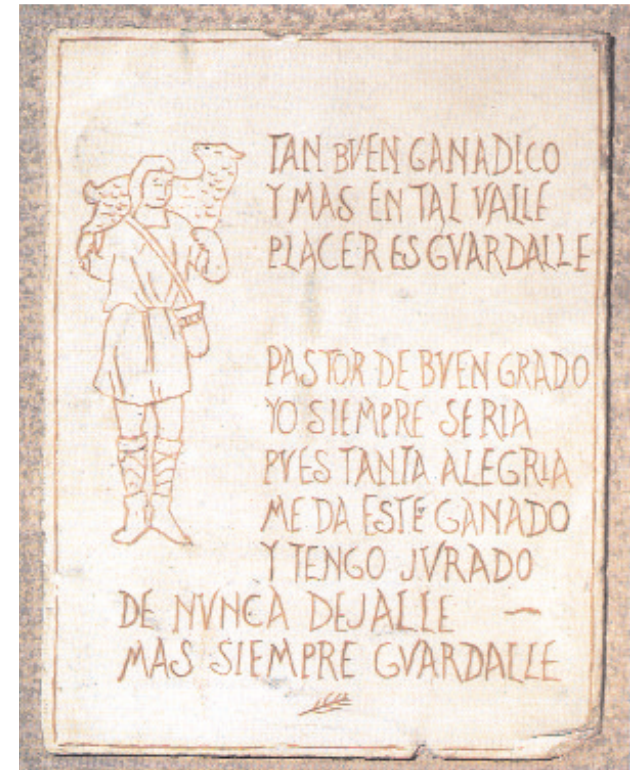 TAN BVEN GANADICO
Y MAS EN TAL VALLE
PLACER ES GVARDALLE
PASTOR DE BVEN GRADO
YO SIEMPRE SERIA
PVES TANTA ALEGRIA
ME DA ESTE GANADO
Y TENGO JVRADO
DE NVNCA DEJALLE
MAS SIEMPRE GVARDALLE